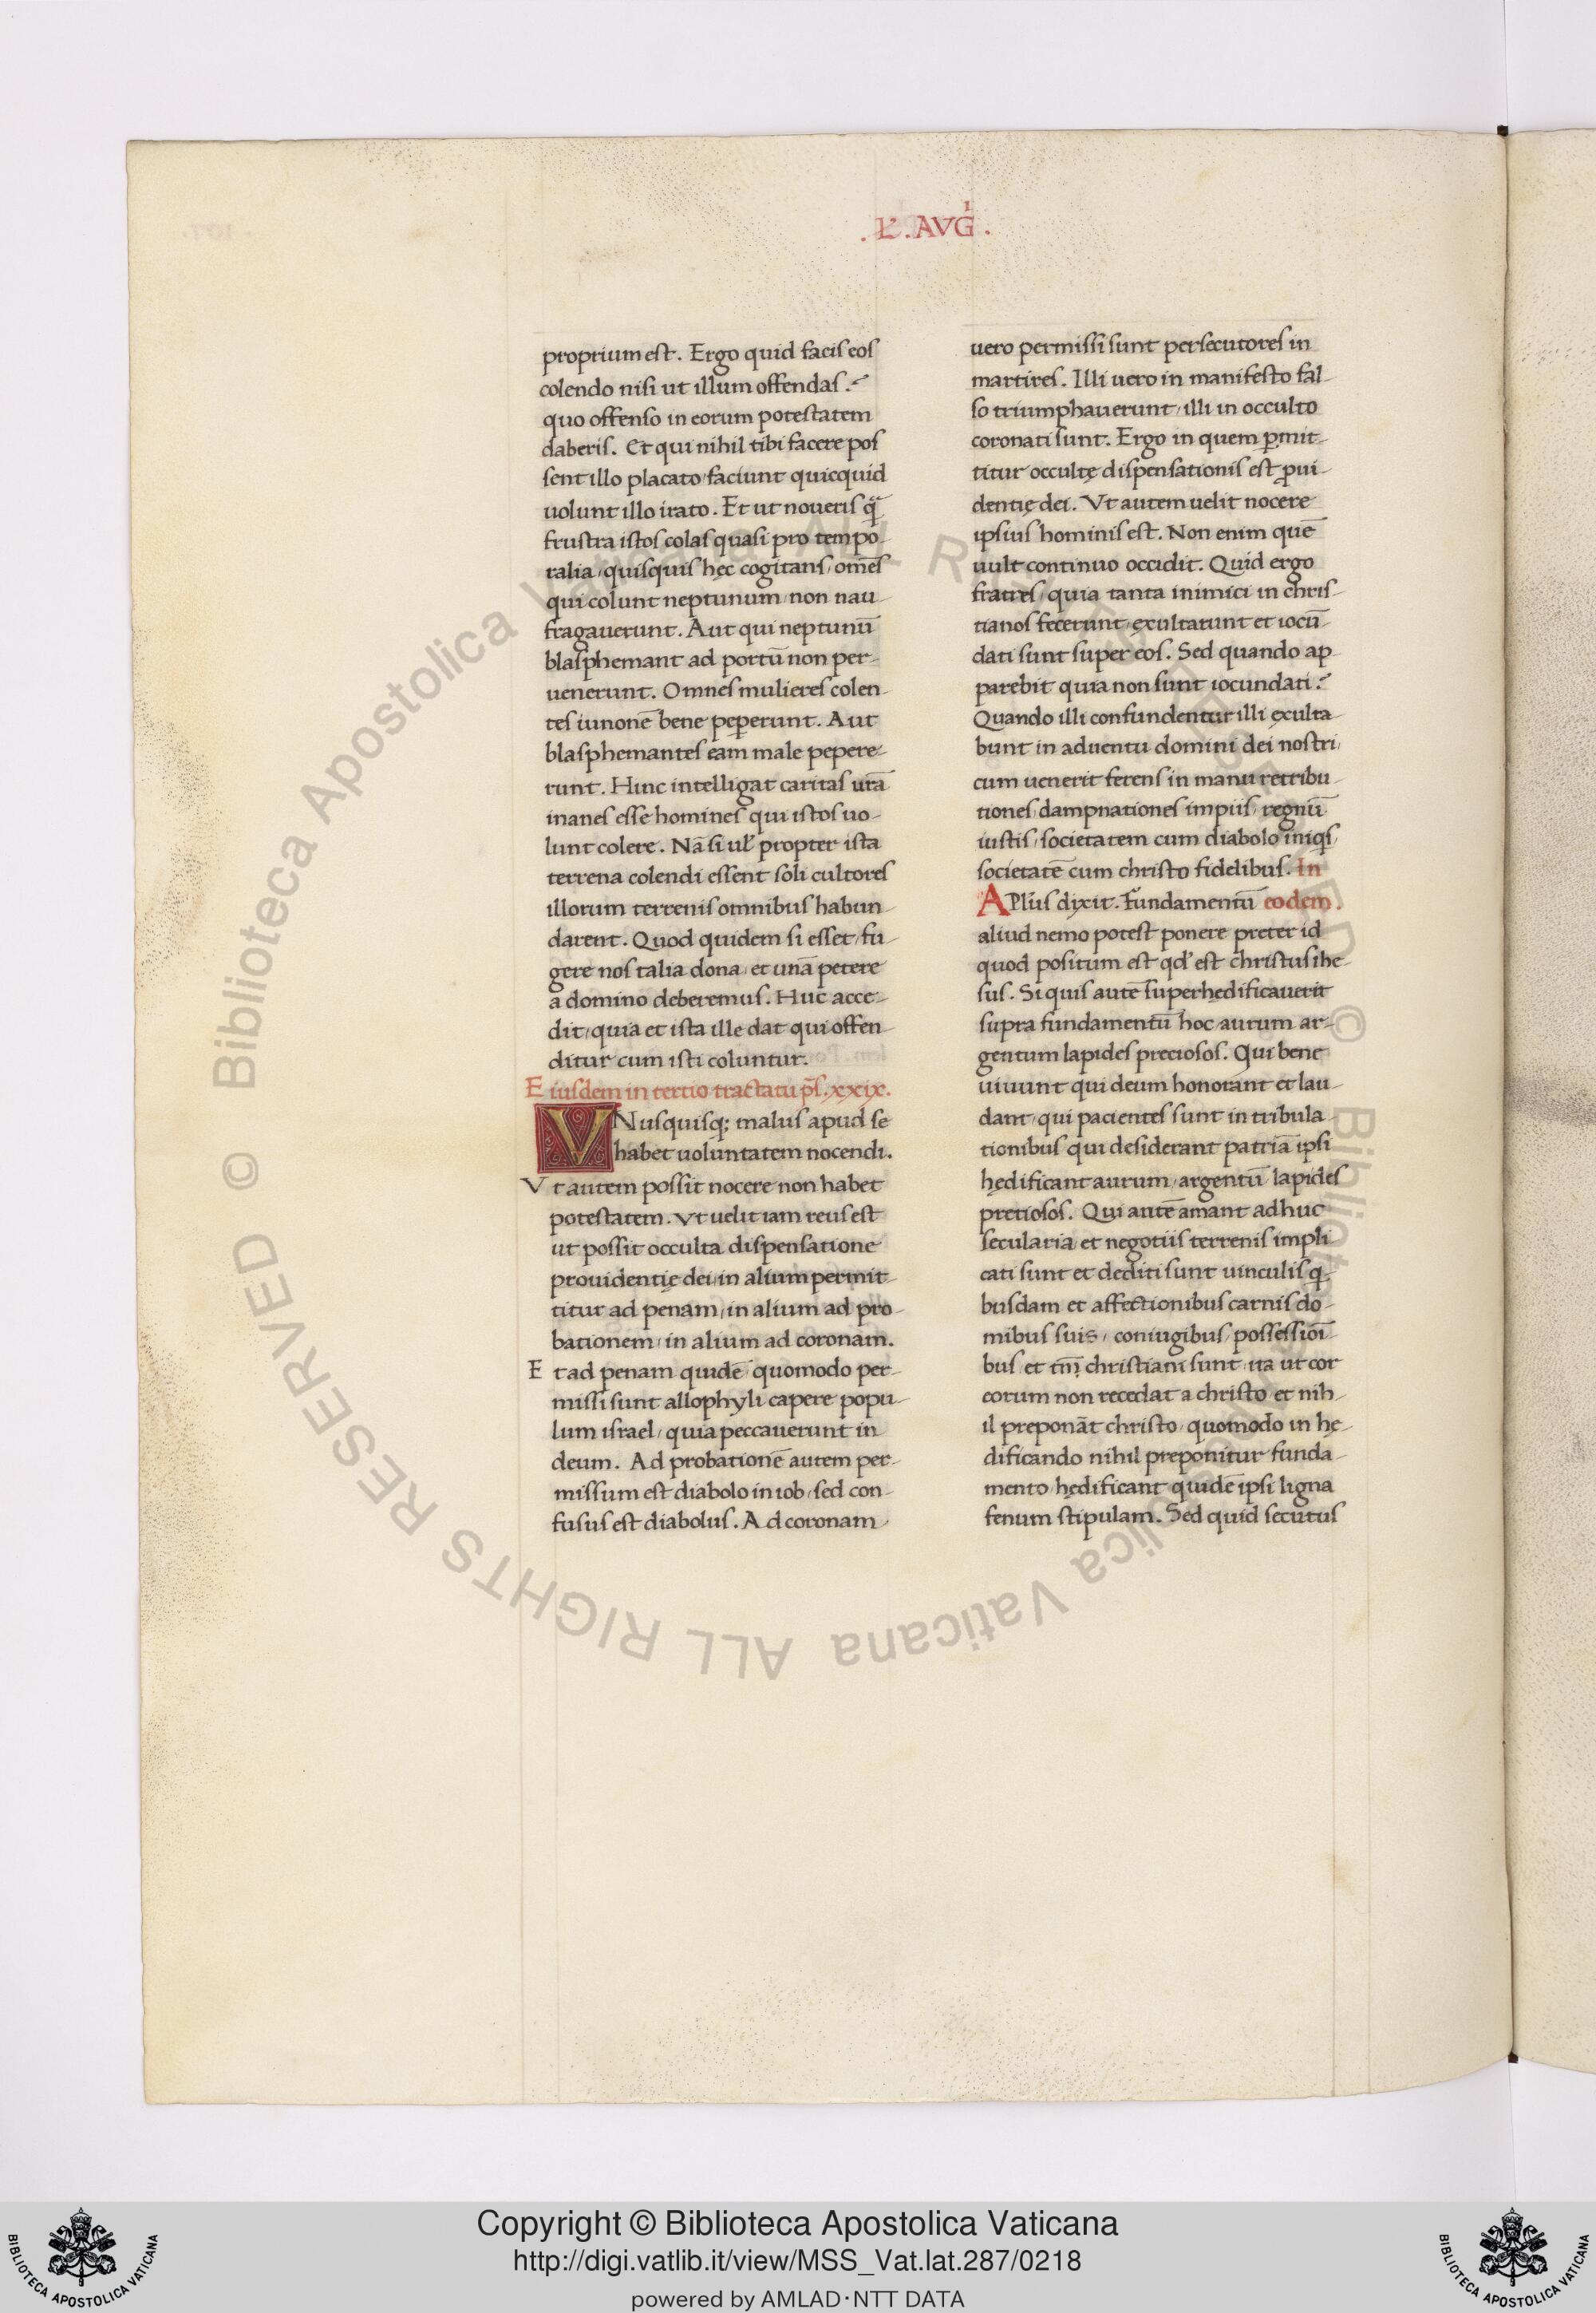 .L'. AVG̅ı.
proprium est. Ergo quid facis eos
colendo nisi ut illum offendas?
quo offenso in eorum potestatem
daberis. Et qui nihil tibi facere pos
sent illo placato, faciunt quicquid
uolunt illo irato. Et ut noueris qͣ
frustra istos colas quasi pro tempo-
ralia, quisquis hęc cogitans, om̅es
qui colunt neptunum, non nau-
fragauerunt. Aut qui neptunu̅
blasphemant ad portu̅ non per-
uenerunt. Omnes mulieres colen-
tes iunone̅ bene peꝑerunt. Aut
blasphemantes eam male pepere-
runt. Hinc intelligat caritas ur̅a
inanes esse homines qui istos uo-
lunt colere. Na̅ si ul' propter ista
terrena colendi essent soli cultores
illorum terrenis omnibus habun-
darent. Quod quidem si esset, fu-
gere nos talia dona, et una̅ petere
a domino deberemus. Huc acce-
dit, quia et ista ille dat qui offen-
ditur cum isti coluntur.
Eiusdem in tertio tractatu ps̅. xxix.
VNusquisq; malus apud se
habet uoluntatem nocendi.
Vt autem possit nocere non habet
potestatem. Vt uelit iam reus est
ut possit occulta dispensatione
prouidentię dei, in alium permit-
titur ad penam, in alium ad pro-
bationem, in alium ad coronam.
Et ad penam quide̅, quomodo per-
missi sunt allophyli capere popu-
lum israel, quia peccauerunt in
deum. Ad probatione̅ autem per-
missum est diabolo in iob, sed con-
fusus est diabolus. Ad coronam
uero permissi sunt persecutores in
martires. Illi uero in manifesto fal-
so triumphauerunt, illi in occulto
coronati sunt. Ergo in quem ꝑmit-
titur occultę dispensationis est ꝓui-
dentię dei. Vt autem uelit nocere
ipsius hominis est. Non enim que̅
uult continuo occidit. Quid ergo
fratres, quia tanta inimici in chris-
tianos fecerunt, exultarunt et iocu̅-
dati sunt super eos. Sed quando ap-
parebit quia non sunt iocundati?
Quando illi confundentur illi exulta-
bunt in aduentu domini dei nostri,
cum uenerit ferens in manu retribu-
tiones, dampnationes impiis, regnu̅
iustis, societatem cum diabolo iniqͥs,
societate̅ cum christo fidelibus. In
APl'us dixit. Fundamentu̅ eodem.
aliud nemo potest ponere preter id
quod positum est qd' est christus ihe-
sus. Si quis aute̅ superhędificauerit
supra fundamentu̅ hoc, aurum ar-
gentum lapides preciosos. Qui bene
uiuunt qui deum honorant et lau-
dant, qui pacientes sunt in tribula-
tionibus qui desiderant patria̅ ipsi
hędificant aurum, argentu̅ lapides
pretiosos. Qui aute̅ amant adhuc
secularia, et negotiis terrenis impli-
cati sunt et dediti sunt uinculis qͥ-
busdam et affectionibus carnis do-
mibus suis, coniugibus, possessioı̅-
bus, et tm̅ christiani sunt, ita ut cor
eorum non recedat a christo, et nih-
il prepona̅t christo, quomodo in hę-
dificando nihil preponitur funda-
mento, hędificant quide̅ ipsi ligna
fenum stipulam. Sed quid secutus
© Biblioteca Apostolica Vaticana ALL RIGHTS RESERVED © Biblioteca Apostolica Vaticana ALL RIGHTS RESERVED
Copyright © Biblioteca Apostolica Vaticana
http://digi.vatlib.it/view/MSS_Vat.lat.287/0218
powered by AMLAD·NTT DATA
BIBLIOTECA APOSTOLICA VATICANA
BIBLIOTECA APOSTOLICA VATICANA